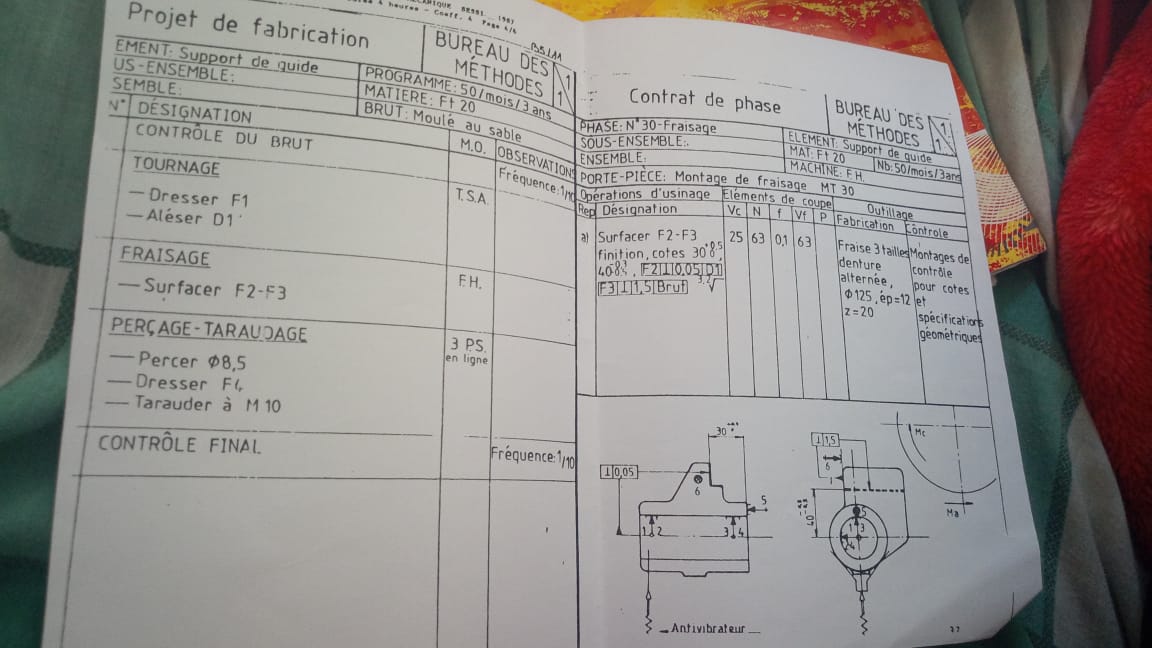 MÉCANIQUE BESSI 1987
4 heures - Coeff. 4 Page 4/6
BS/11
Projet de fabrication
BUREAU DES
MÉTHODES
1
1
EMENT: Support de guide
US-ENSEMBLE:
SEMBLE:
PROGRAMME: 50/mois/3 ans
MATIERE: Ft 20
BRUT: Moulé au sable
N° DÉSIGNATION M.O. OBSERVATIONS
CONTRÔLE DU BRUT Fréquence: 1/10
TOURNAGE T.S.A.
— Dresser F1
— Aléser D1
FRAISAGE F.H.
— Surfacer F2-F3
PERÇAGE-TARAUDAGE 3 P.S.
en ligne
— Percer Φ8,5
— Dresser F4
— Tarauder à M 10
CONTRÔLE FINAL Fréquence: 1/10
Contrat de phase
BUREAU DES
MÉTHODES
1
1
PHASE: N°30-Fraisage
SOUS-ENSEMBLE:
ENSEMBLE:
ELEMENT: Support de guide
MAT: Ft 20 Nb: 50/mois/3ans
MACHINE: F.H.
PORTE-PIÈCE: Montage de fraisage MT 30
Opérations d'usinage Eléments de coupe Outillage
Rep Désignation Vc N f Vf P Fabrication Côntrole
a) Surfacer F2-F3 25 63 0,1 63
finition, cotes 30
40 , F2 ⊥ 0,05 D1
F3 ⊥ 1,5 Brut 3,2√
Fraise 3 tailles
denture
alternée,
Φ125, ép=12
z=20
Montages de
contrôle
pour cotes
et
spécifications
géométriques
30
⊥ 0,05
6
5
1 2 3 4
⊥ 1,5
6
40
5
1 3
2 4
Mc
Ma
Antivibrateur